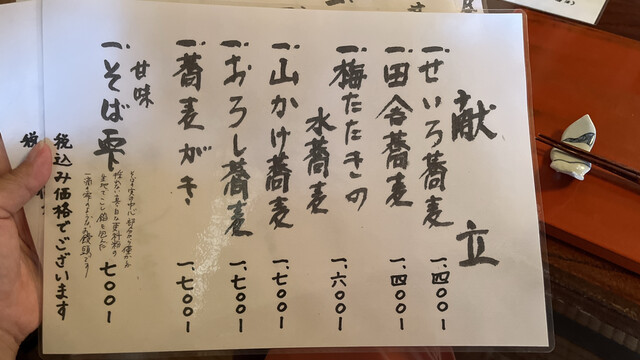 献立
一、せいろ蕎麦 一、四〇〇ー
一、田舎蕎麦 一、四〇〇ー
一、梅たたきの
水蕎麦 一、六〇〇ー
一、山かけ蕎麦 一、七〇〇ー
一、おろし蕎麦 一、七〇〇ー
一、蕎麦がき 一、七〇〇ー
甘味
一、そば雫 七〇〇ー
税込み価格でございます